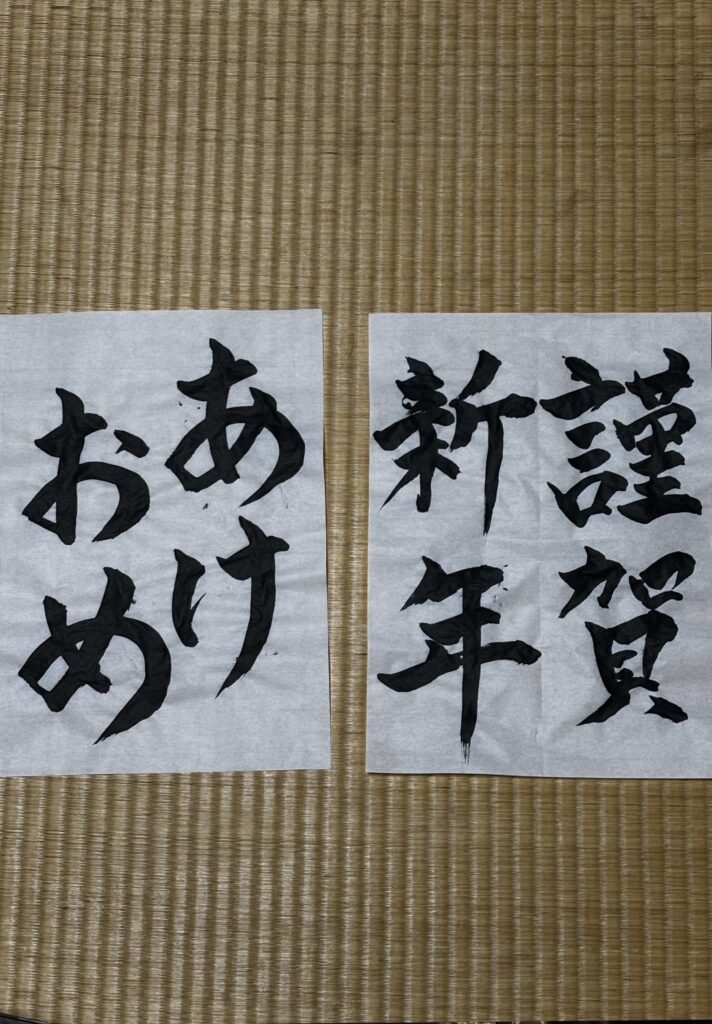 謹賀
新年
あけ
おめ